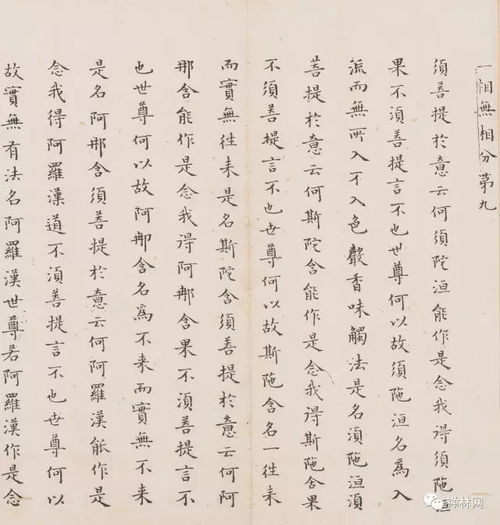 一相無相分第九
須菩提於意云何須陁洹能作是念我得須陁洹
果不須菩提言不也世尊何以故須陁洹名為入
流而無所入不入色聲香味觸法是名須陁洹須
菩提於意云何斯陁含能作是念我得斯陁含果
不須菩提言不也世尊何以故斯陁含名一徃来
而實無徃来是名斯陁含須菩提於意云何阿
那含能作是念我得阿那含果不須菩提言不
也世尊何以故阿那含名為不来而實無不来
是名阿那含須菩提於意云何阿羅漢能作是
念我得阿羅漢道不須菩提言不也世尊何以
故實無有法名阿羅漢世尊若阿羅漢作是念
禅林网